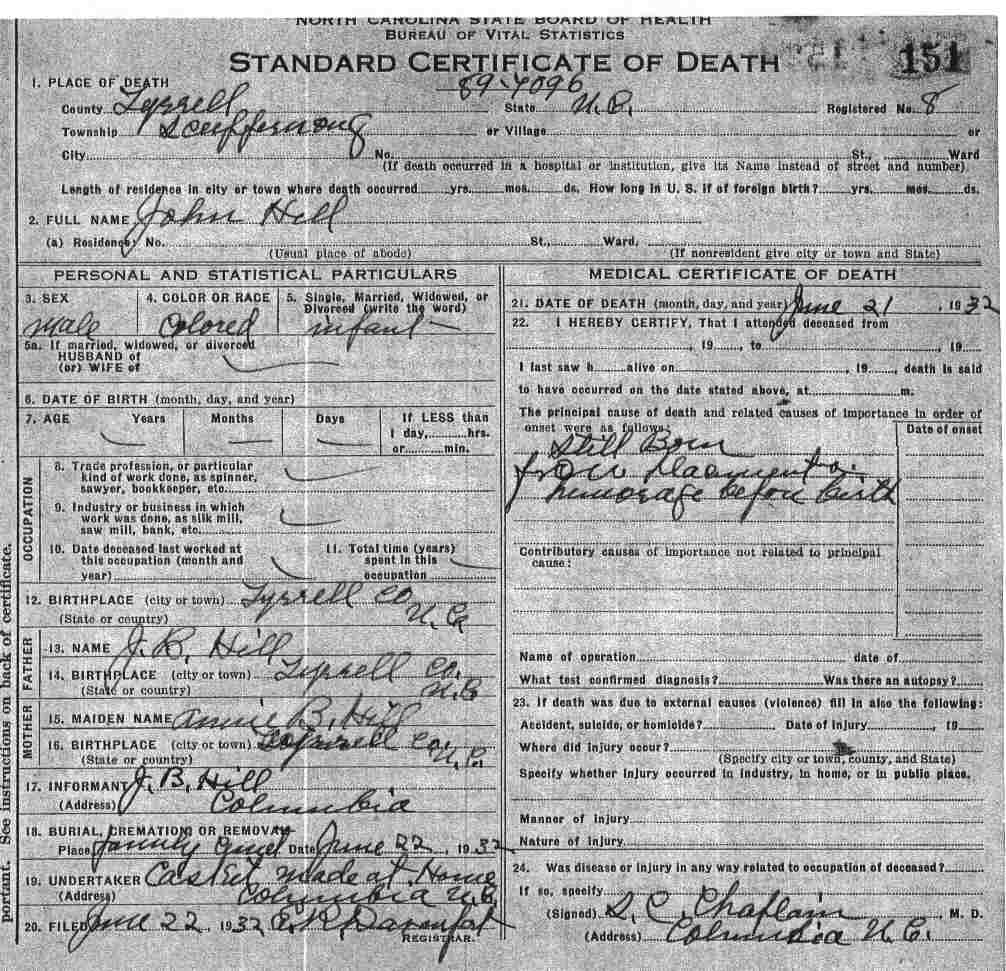 NORTH CAROLINA STATE BOARD OF HEALTH
BUREAU OF VITAL STATISTICS
STANDARD CERTIFICATE OF DEATH 151
89-7096
1. PLACE OF DEATH
County Tyrrell State N.C. Registered No. 8
Township Scuppernong or Village or
City No. St., Ward
(If death occurred in a hospital or institution, give its Name instead of street and number)
Length of residence in city or town where death occurred yrs. mos. ds. How long in U. S. if of foreign birth? yrs. mos. ds.
2. FULL NAME John Hill
(a) Residence; No. St., Ward,
(Usual place of abode) (If nonresident give city or town and State)
PERSONAL AND STATISTICAL PARTICULARS
3. SEX 4. COLOR OR RACE 5. Single, Married, Widowed, or
Divorced (write the word)
male colored infant
5a. If married, widowed, or divorced
HUSBAND of
(or) WIFE of
6. DATE OF BIRTH (month, day, and year)
7. AGE Years Months Days If LESS than
1 day, hrs.
or min.
OCCUPATION
8. Trade profession, or particular
kind of work done, as spinner,
sawyer, bookkeeper, etc.
9. Industry or business in which
work was done, as silk mill,
saw mill, bank, etc.
10. Date deceased last worked at
this occupation (month and
year)
11. Total time (years)
spent in this
occupation
12. BIRTHPLACE (city or town) Tyrrell Co
(State or country) N.C
FATHER
13. NAME J. B. Hill
14. BIRTHPLACE (city or town) Tyrrell Co.
(State or country) N.C
MOTHER
15. MAIDEN NAME Annie B. Hill
16. BIRTHPLACE (city or town) Tyrrell Co.
(State or country) N.C.
17. INFORMANT J. B. Hill
(Address) Columbia
18. BURIAL, CREMATION OR REMOVAL
Place family Date June 22, 1932
19. UNDERTAKER Casket made at Home
(Address) Columbia N.C.
20. FILED June 22, 1932 Davenport
REGISTRAR.
MEDICAL CERTIFICATE OF DEATH
21. DATE OF DEATH (month, day, and year) June 21, 1932
22. I HEREBY CERTIFY, That I attended deceased from
, 19 , to , 19
I last saw h alive on , 19 , death is said
to have occurred on the date stated above, at m.
The principal cause of death and related causes of importance in order of
onset were as follows: Date of onset
Still Born
from
hemorage before birth
Contributory causes of importance not related to principal
cause:
Name of operation date of
What test confirmed diagnosis? Was there an autopsy?
23. If death was due to external causes (violence) fill in also the following:
Accident, suicide, or homicide? Date of injury , 19
Where did injury occur?
(Specify city or town, county, and State)
Specify whether injury occurred in industry, in home, or in public place.
Manner of injury
Nature of injury
24. Was disease or injury in any way related to occupation of deceased?
If so, specify
(Signed) S. C. Chaplain, M. D.
(Address) Columbia N.C.
portant. See instructions on back of certificate.